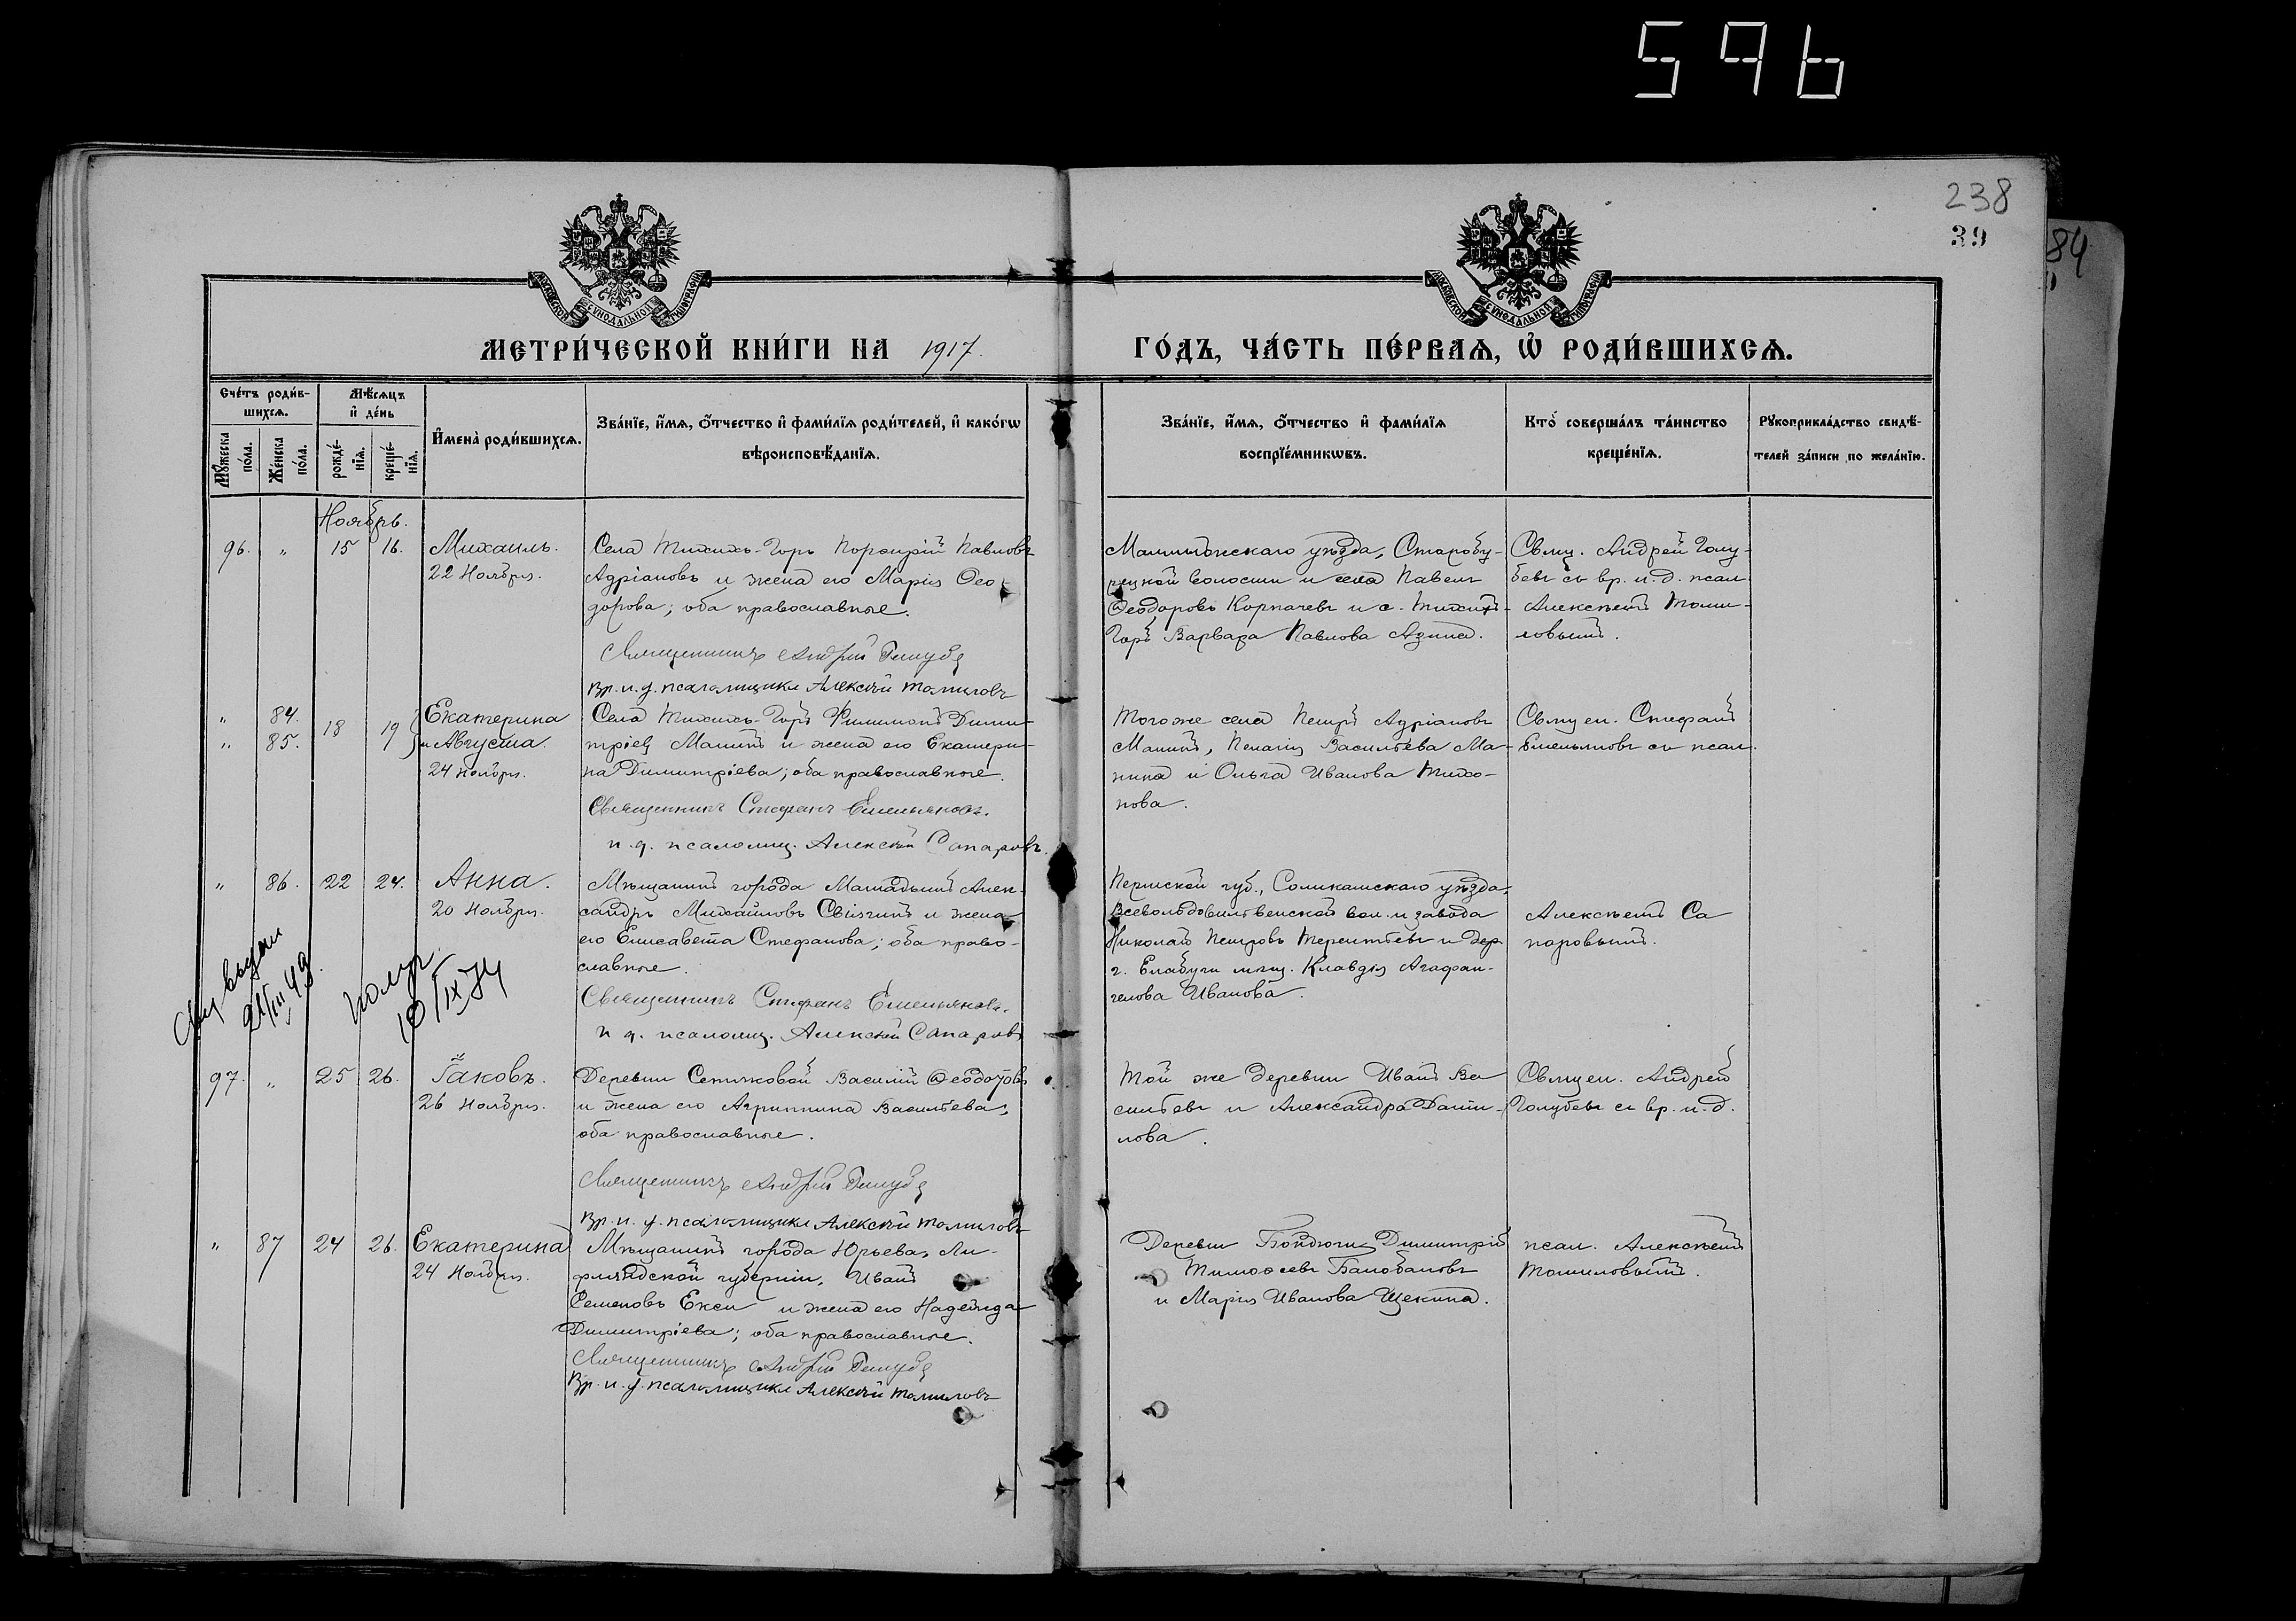 596
238
39
84
МОСКОВСКОЙ СѴНОДАЛЬНОЙ ТИПОГРАФІИ
МОСКОВСКОЙ СѴНОДАЛЬНОЙ ТИПОГРАФІИ
МЕТРИ́ЧЕСКОЙ КНИ́ГИ НА 1917. ГО́ДЪ, ЧА́СТЬ ПЕ́РВАЯ, Ѡ҆ РОДИ́ВШИХСЯ.
Сче́тъ роди́в-
шихся.
Му́жеска
по́ла.
Же́нска
по́ла.
Мѣ́сяцъ
и҆ де́нь
рожде́-
нїя.
креще́-
нїя.
И҆мена̀ роди́вшихся.
Зва́нїе, и҆́мя, ѻ҆́тчество и҆ фами́лїя роди́телей, и҆ како́гѡ
вѣроисповѣ́данїя.
Зва́нїе, и҆́мя, ѻ҆́тчество и҆ фами́лїя
воспрїе́мникѡвъ.
Кто̀ соверша́лъ та́инство
креще́нїя.
Рꙋкоприкла́дство свидѣ́-
телей за́писи по жела́нїю.
Ноябрь.
96. „ 15 16. Михаилъ.
22 Ноября.
Села Тихихъ-Горъ Порфирій Павловъ
Адріановъ и жена его Марія Ѳео-
дорова; оба православные.
Священникъ Андрей Голубе
Вр. и. д. псаломщика Алексѣй Томиловъ
Мамадышскаго уѣзда, Старобу-
рецкой волости и села Павелъ
Ѳеодоровъ Корпачевъ и с. Тихихъ-
Горъ Варвара Павлова Азина.
Свящ. Андрей Голу-
бевъ съ вр. и. д. псал.
Алексѣемъ Томи-
ловымъ.
„ 84.
„ 85. 18 19 Екатерина
и Августа.
24 Ноября.
Села Тихихъ-Горъ Филимонъ Дими-
тріевъ Манинъ и жена его Екатери-
на Димитріева; оба православные.
Священникъ Стефанъ Емельяновъ.
и. д. псаломщ. Алексѣй Сапаровъ.
Того же села Петръ Адріановъ
Манинъ, Пелагія Васильева Ма-
нина и Ольга Иванова Тихо-
нова.
Священ. Стефанъ
Емельяновъ съ псал.
„ 86. 22 24. Анна.
20 Ноября.
Мѣщанинъ города Мамадышъ Алек-
сандръ Михайловъ Свіягинъ и жена
его Елисавета Стефанова; оба право-
славные.
Священникъ Стефанъ Емельяновъ.
и д. псаломщ. Алексѣй Сапаровъ
Пермской губ., Соликамскаго уѣзда,
Всеволодовильвенской вол. и завода
Николай Петровъ Терентьевъ и дер
г. Елабуги мѣщ. Клавдія Агафан-
гелова Иванова.
Алексѣемъ Са
паровымъ.
выдан
21/III 49
10/IX 74
97. „ 25 26. Іаковъ.
26 Ноября.
Деревни Сетяковой Василій Ѳеодоровъ
и жена его Агриппина Васильева;
оба православные.
Священникъ Андрей Голубе
Вр. и. д. псаломщика Алексѣй Томиловъ
Той же деревни Иванъ Ва
сильевъ и Александра Дани-
лова.
Священ. Андрей
Голубевъ съ вр. и. д.
„ 87 24 26. Екатерина
24 Ноября.
Мѣщанинъ города Юрьева, Ли-
фляндской губерніи, Иванъ
Семеновъ Екси и жена его Надежда
Димитріева; оба православные.
Священникъ Андрей Голубе
Вр. и. д. псаломщика Алексѣй Томиловъ
Деревни Бондюги Димитрій
Тимоѳеевъ Балобановъ
и Марія Иванова Щекина.
псал. Алексѣемъ
Томиловымъ.